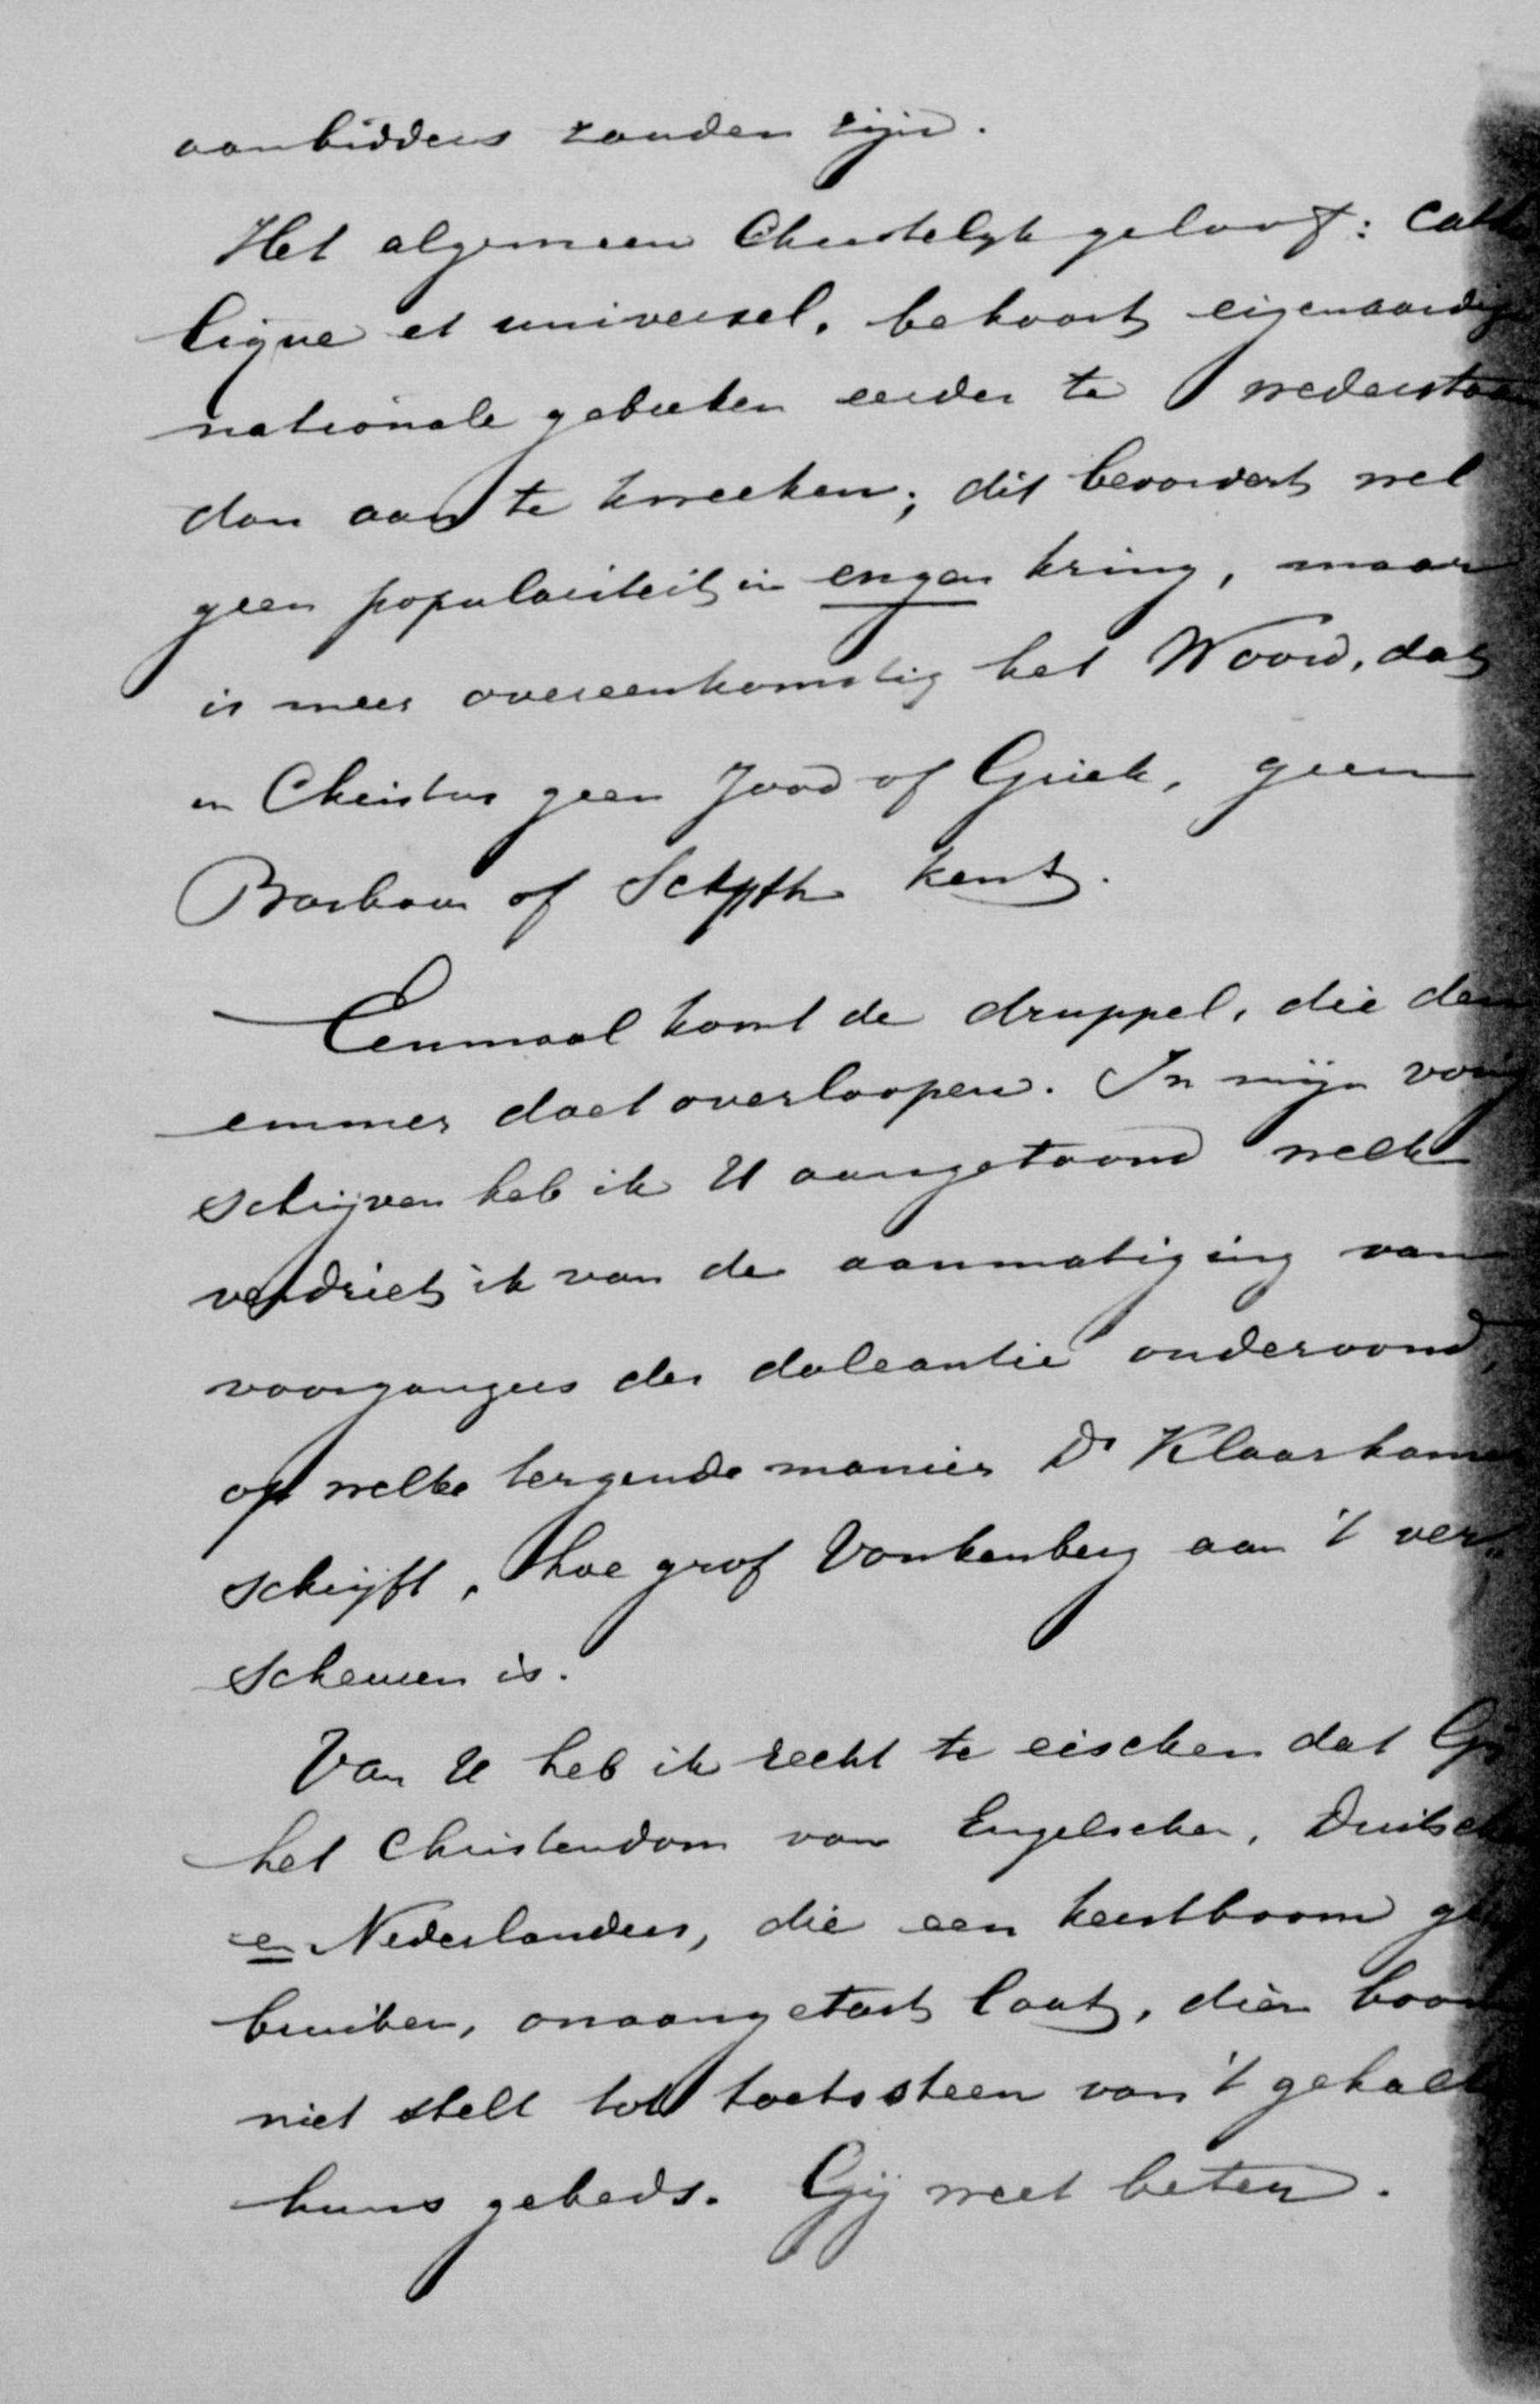 aanbidders zouden zijn.
Het algemeen Christelijk geloof: Catho
lique et universel, behoort eigenaardige
nationale gebreken eerder te wederstaan
dan aan te kweeken; dit bevordert wel
geen populariteit in engen kring, maar
is meer overeenkomstig het Woord, dat
in Christus geen Jood of Griek, geen
Barbaar of Schyth kent.
Eenmaal komt de druppel, die den
emmer doet overloopen. In mijn vorig
schrijven heb ik U aangetoond welk
verdriet ik van de aanmatiging van
voorgangers der doleantie ondervond,
op welke tergende manier Ds Klaarhamer
schrijft, hoe grof Vonkenberg aan 't ver-
scheuren is.
Van U heb ik recht te eischen dat Gij
het Christendom van Engelschen, Duitschers
en Nederlanders, die een kerstboom ge
bruiken, onaangetast laat, dien boom
niet stelt tot toetssteen van 't gehalte
huns gebeds. Gij weet beter.